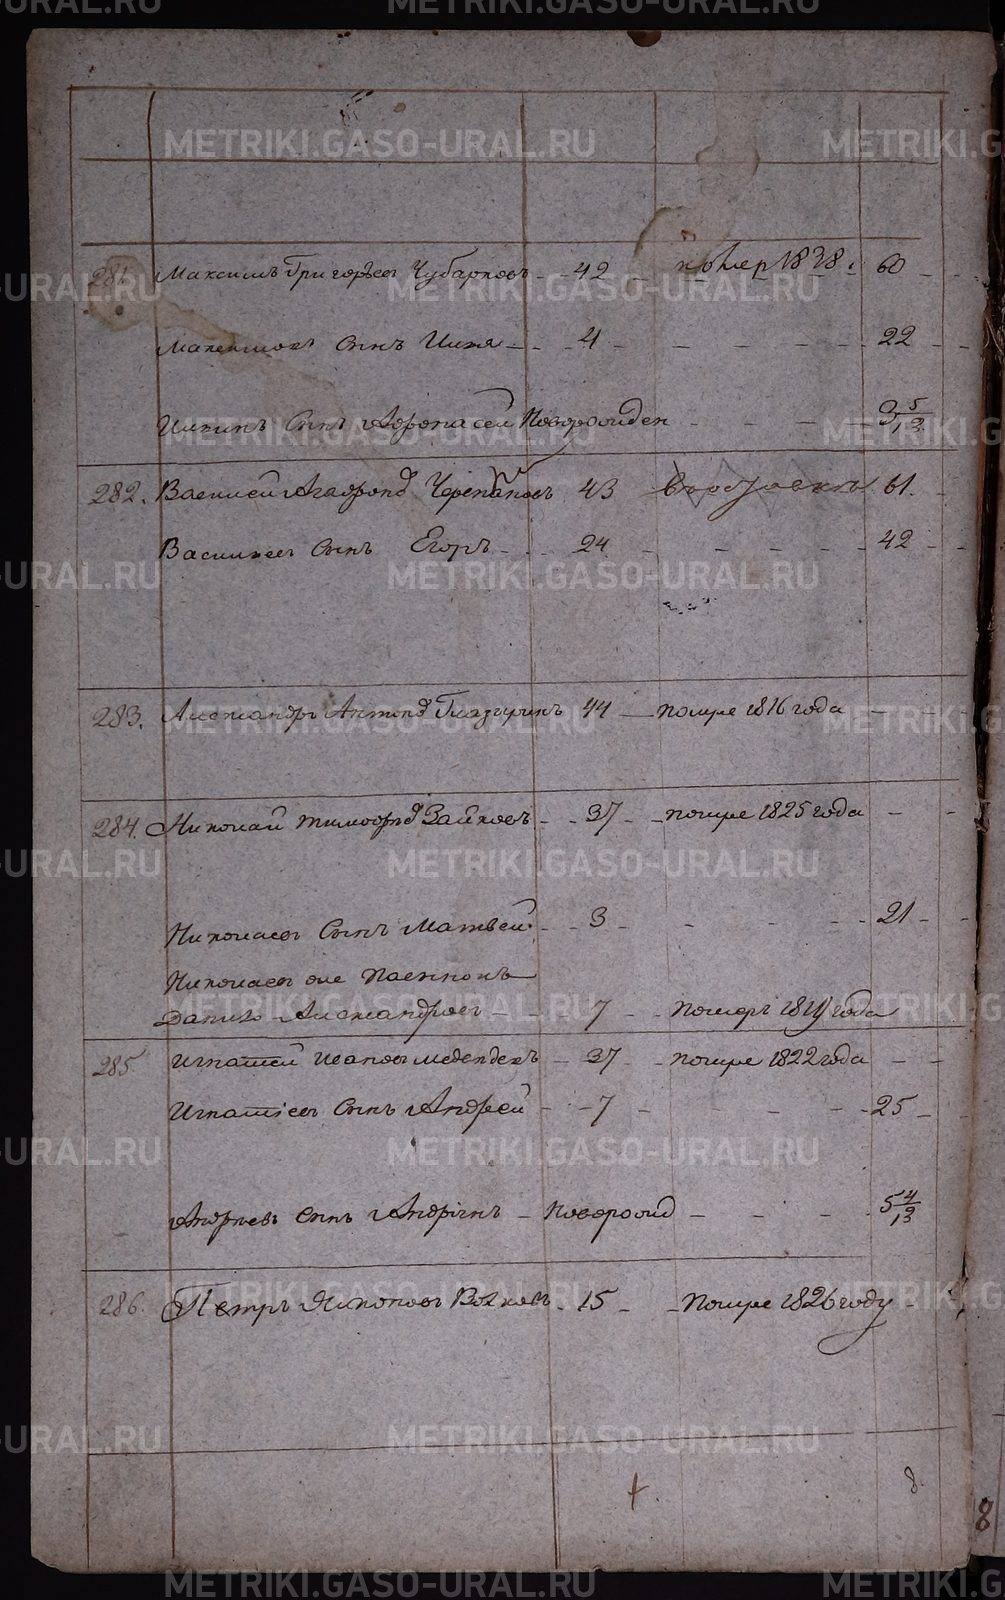 281. Максимъ Григорьевъ Чубарковъ 42 помер 1838. 60
Максимовъ сынъ Илья 4 22
Ильинъ сынъ Афонасей новорожден 5/12
282. Василей Агафонов Черепановъ 43 61.
Васильев сынъ Егоръ 24 42
283. Александръ Антонов Глазыринъ 44 помре 1816 года
284. Николай Тимофѣев Зайковъ 37 помре 1825 года
Николаев сынъ Матвей 3 21
Николаев же пасынокъ
Данило Александров 7 помер 1819 года
285 Игнатей Иванов Меденцовъ 37 помре 1822 года
Игнатіев сынъ Андрей 7 25
Андреевъ сынъ новорожд 5 4/12
286. Петръ Никоновъ Волковъ 15 помре 1826 году
8.
8
METRIKI.GASO-URAL.RU